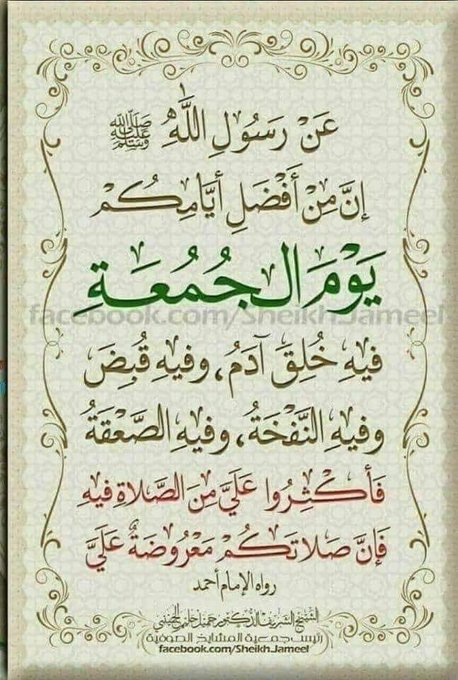 عَنْ رَسُولِ اللَّهِ ﷺ
إنَّ مِنْ أَفْضَلِ أَيَّامِكُمْ
يَوْمَ الجُمُعَةِ
facebook.com/Sheikh.Jameel
فِيهِ خُلِقَ آدَمُ، وفِيهِ قُبِضَ
وفِيهِ النَّفْخَةُ، وفِيهِ الصَّعْقَةُ
فَأَكْثِرُوا عَلَيَّ مِنَ الصَّلاةِ فِيهِ
فَإنَّ صَلاتَكُمْ مَعْرُوضَةٌ عَلَيَّ
رواه الإمام أحمد
الشيخ الشريف الدكتور جميل حليم الحسيني
رئيس جمعية المشايخ الصوفية
facebook.com/Sheikh.Jameel